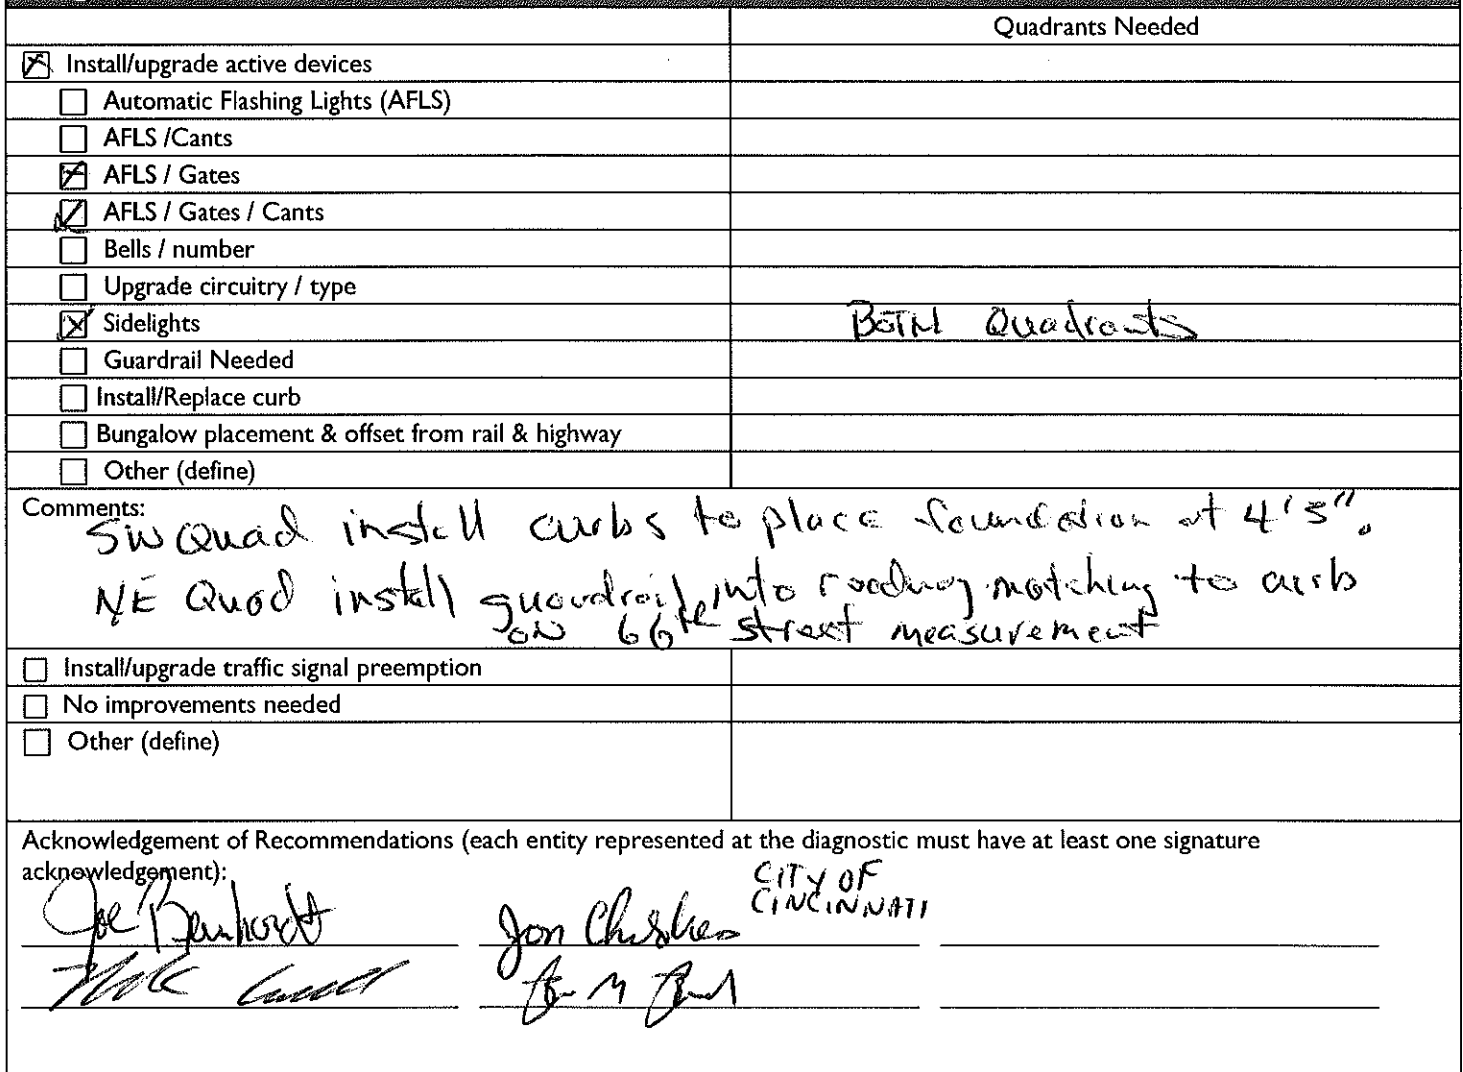 Quadrants Needed
Install/upgrade active devices
Automatic Flashing Lights (AFLS)
AFLS /Cants
AFLS / Gates
AFLS / Gates / Cants
Bells / number
Upgrade circuitry / type
Sidelights BOTH Quadrants
Guardrail Needed
Install/Replace curb
Bungalow placement & offset from rail & highway
Other (define)
Comments:
SW Quad install curbs to place foundation at 4'3".
NE Quad install guardrail into roadway matching to curb
ON 66th street measurement
Install/upgrade traffic signal preemption
No improvements needed
Other (define)
Acknowledgement of Recommendations (each entity represented at the diagnostic must have at least one signature
acknowledgement):
CITY OF
CINCINNATI
Joe Jon